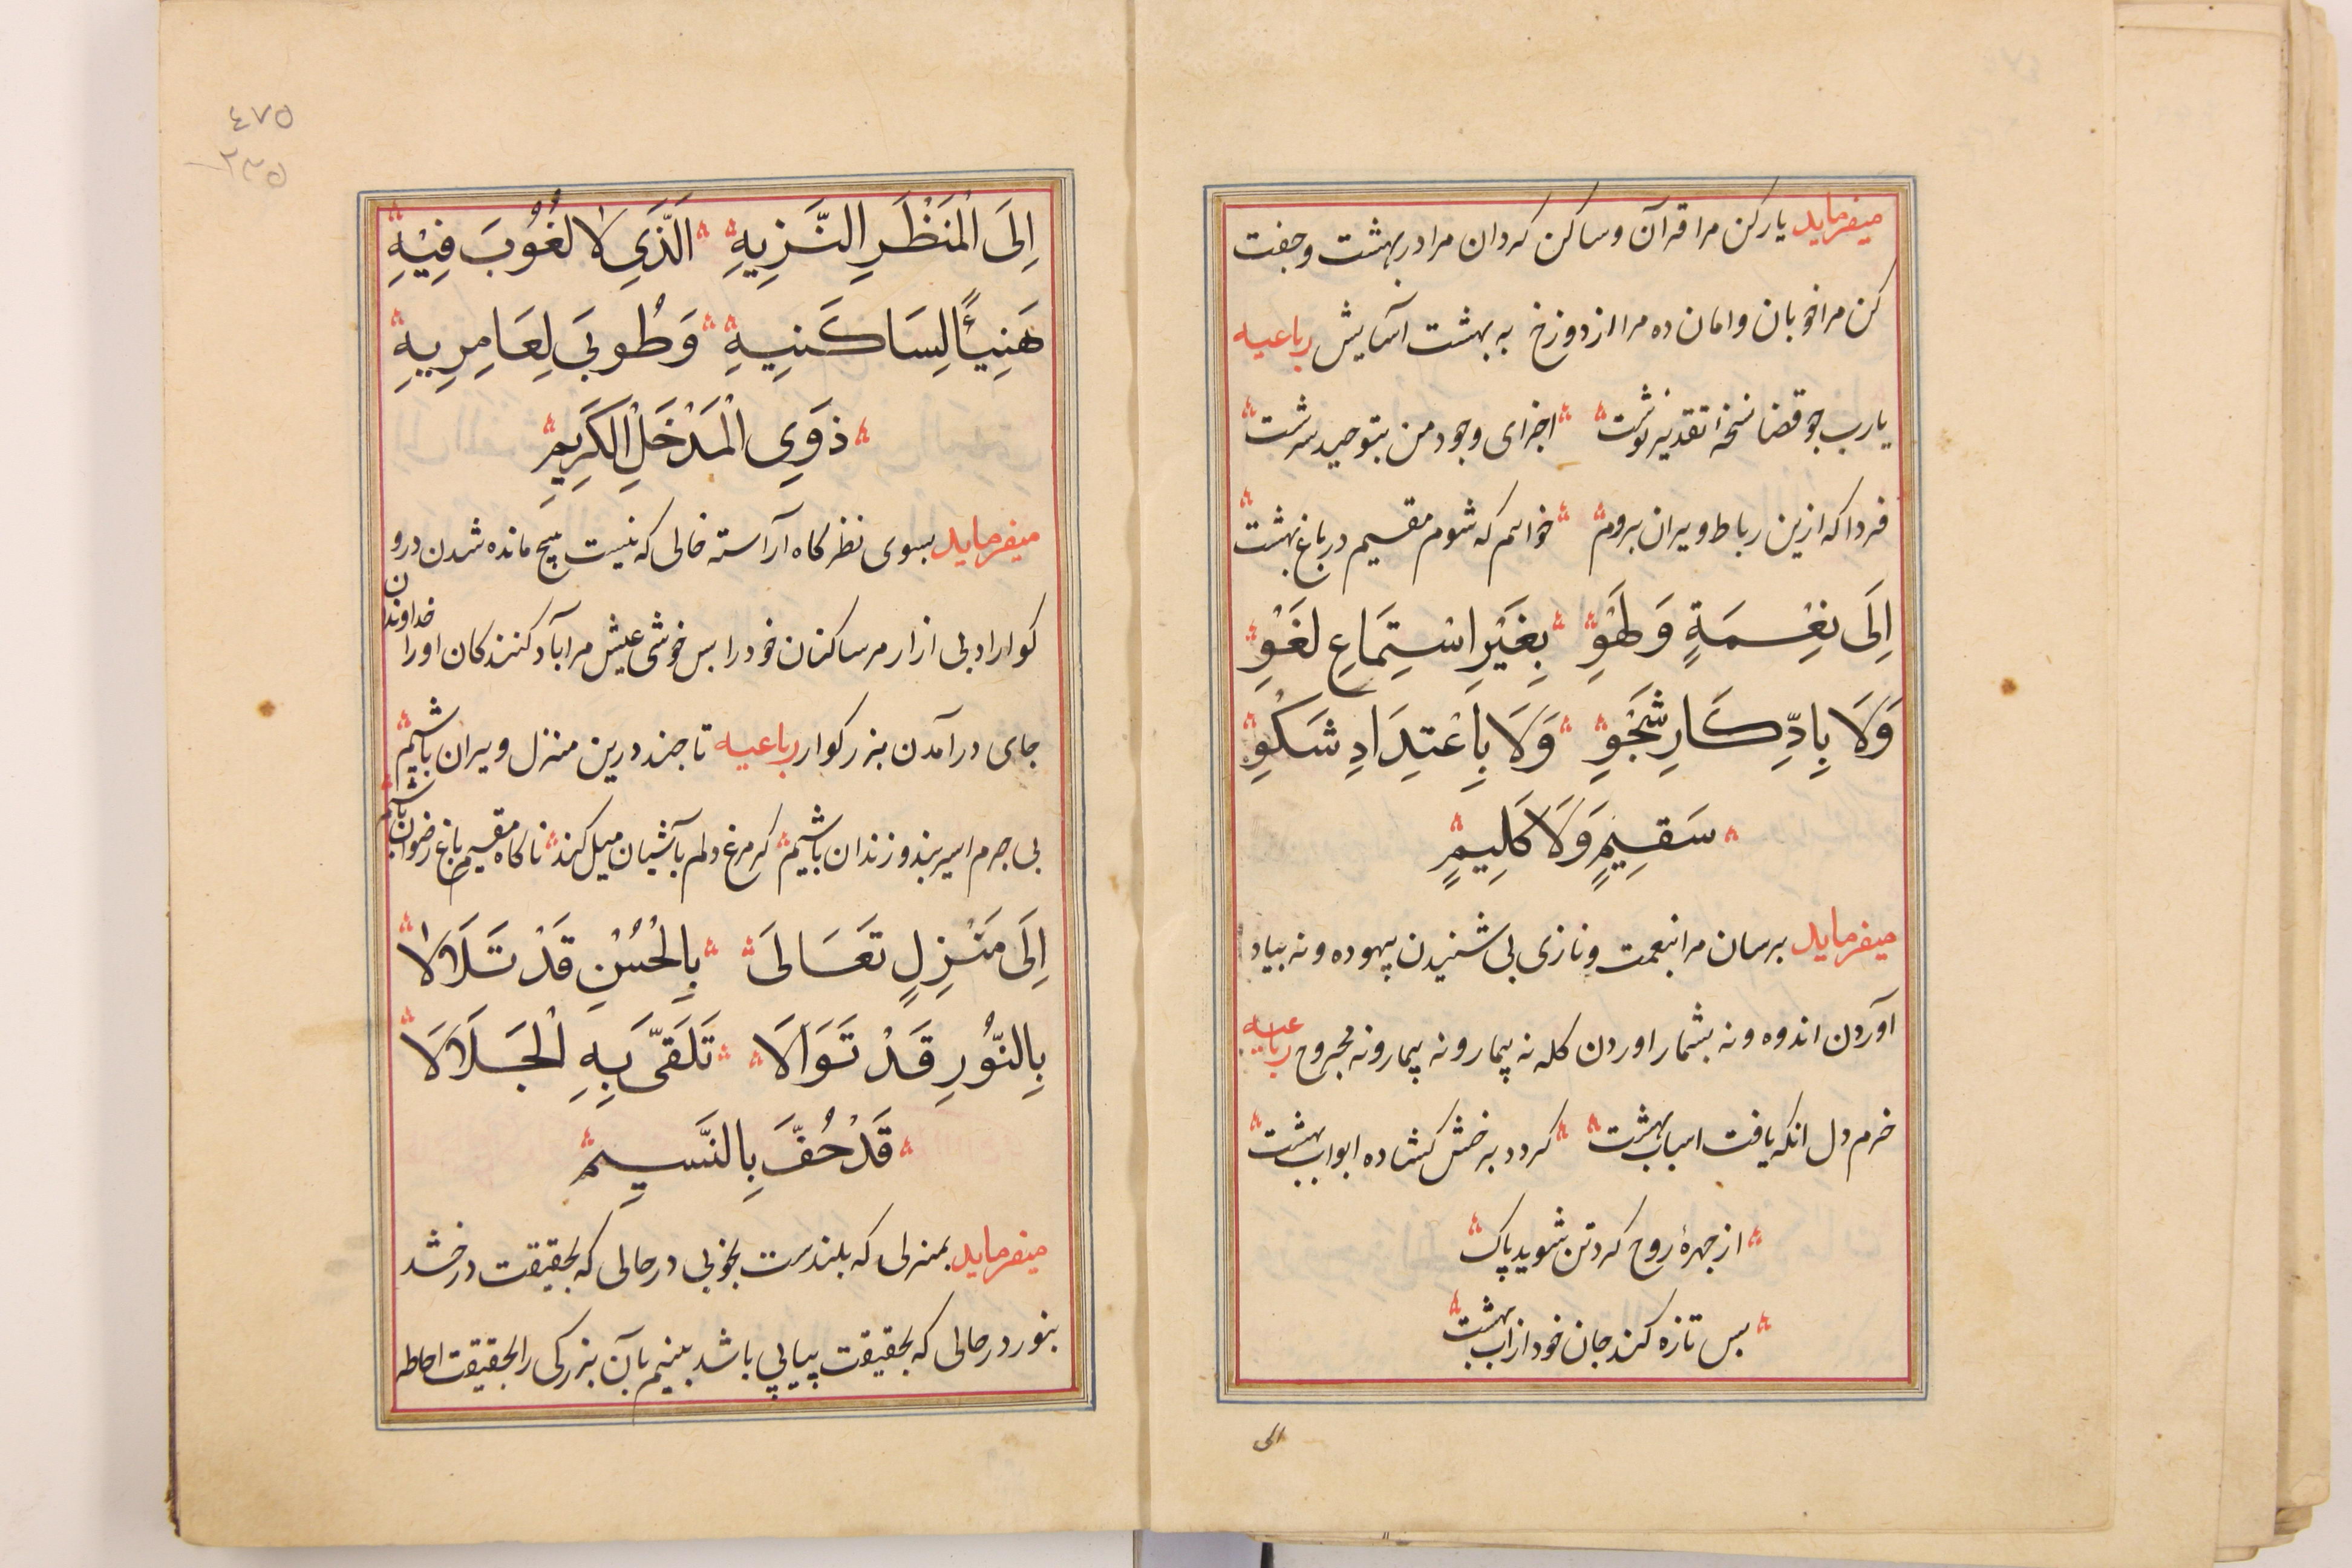 میفرماید یار کن مرا قرآن و ساکن کردان مرا در بهشت و جفت
کن مرا خوبان و امان ده مرا از دوزخ به بهشت آسایش رباعیه
یارب جو قضا نسخهٔ تقدیر نوشت اجزای وجود من بتوحید سرشت
فردا که ازین رباط ویران بروم خواهم که شوم مقیم در باغ بهشت
اِلَى نِعْمَةٍ وَلَهْوٍ بِغَيْرِ اسْتِمَاعِ لَغْوٍ
وَلَا بِادِّكَارِ شَجْوٍ وَلَا بِاعْتِدَادِ شَكْوٍ
سَقِيمٍ وَلَا كَلِيمٍ
میفرماید برسان مرا بنعمت و نازی بی شنیدن بیهوده و نه بیاد
آوردن اندوه و نه بشمار اوردن کله نه بیمار و نه بیمار و نه مجروح رباعیه
خرم دل انکه یافت اسباب بهشت کردد برخش کشاده ابواب بهشت
از جهرهٔ روح کرد تن شوید پاک
بس تازه کند جان خود از اب بهشت
الی
٤٧٥
٢٣٥
اِلَى الْمَنْظَرِ النَّزِيهِ الَّذِي لَا لُغُوبَ فِيْهِ
هَنِيئًا لِسَاكَنِيهِ وَطُوبَى لِعَامِرِيهِ
ذَوِي الْمَدْخَلِ الْكَرِيمِ
میفرماید بسوی نظرکاه آراسته خالی که نیست هیچ مانده شدن درو
کوارا دبی ازار مر ساکنان خود را بس خوشی عیش مر اباد کنندکان اورا خداوندان
جای درآمدن بزرکوار رباعیه تا جند درین منزل ویران باشیم
بی جرم اسیر بند و زندان باشیم کر مرغ دلم بآشیان میل کند ناکاه مقیم باغ رضوان باشیم
اِلَى مَنْزِلٍ تَعَالَى بِالْحُسْنِ قَدْ تَلَالَا
بِالنُّورِ قَدْ تَوَالَا تَلَقَّى بِهِ الْجَلَالَا
قَدْ حُفَّ بِالنَّسِيمِ
میفرماید بمنزلی که بلندست بخوبی در حالی که بحقیقت درخشد
بنور در حالی که بحقیقت پیاپی باشد بینم بآن بزرکی را بحقیقت احاطه